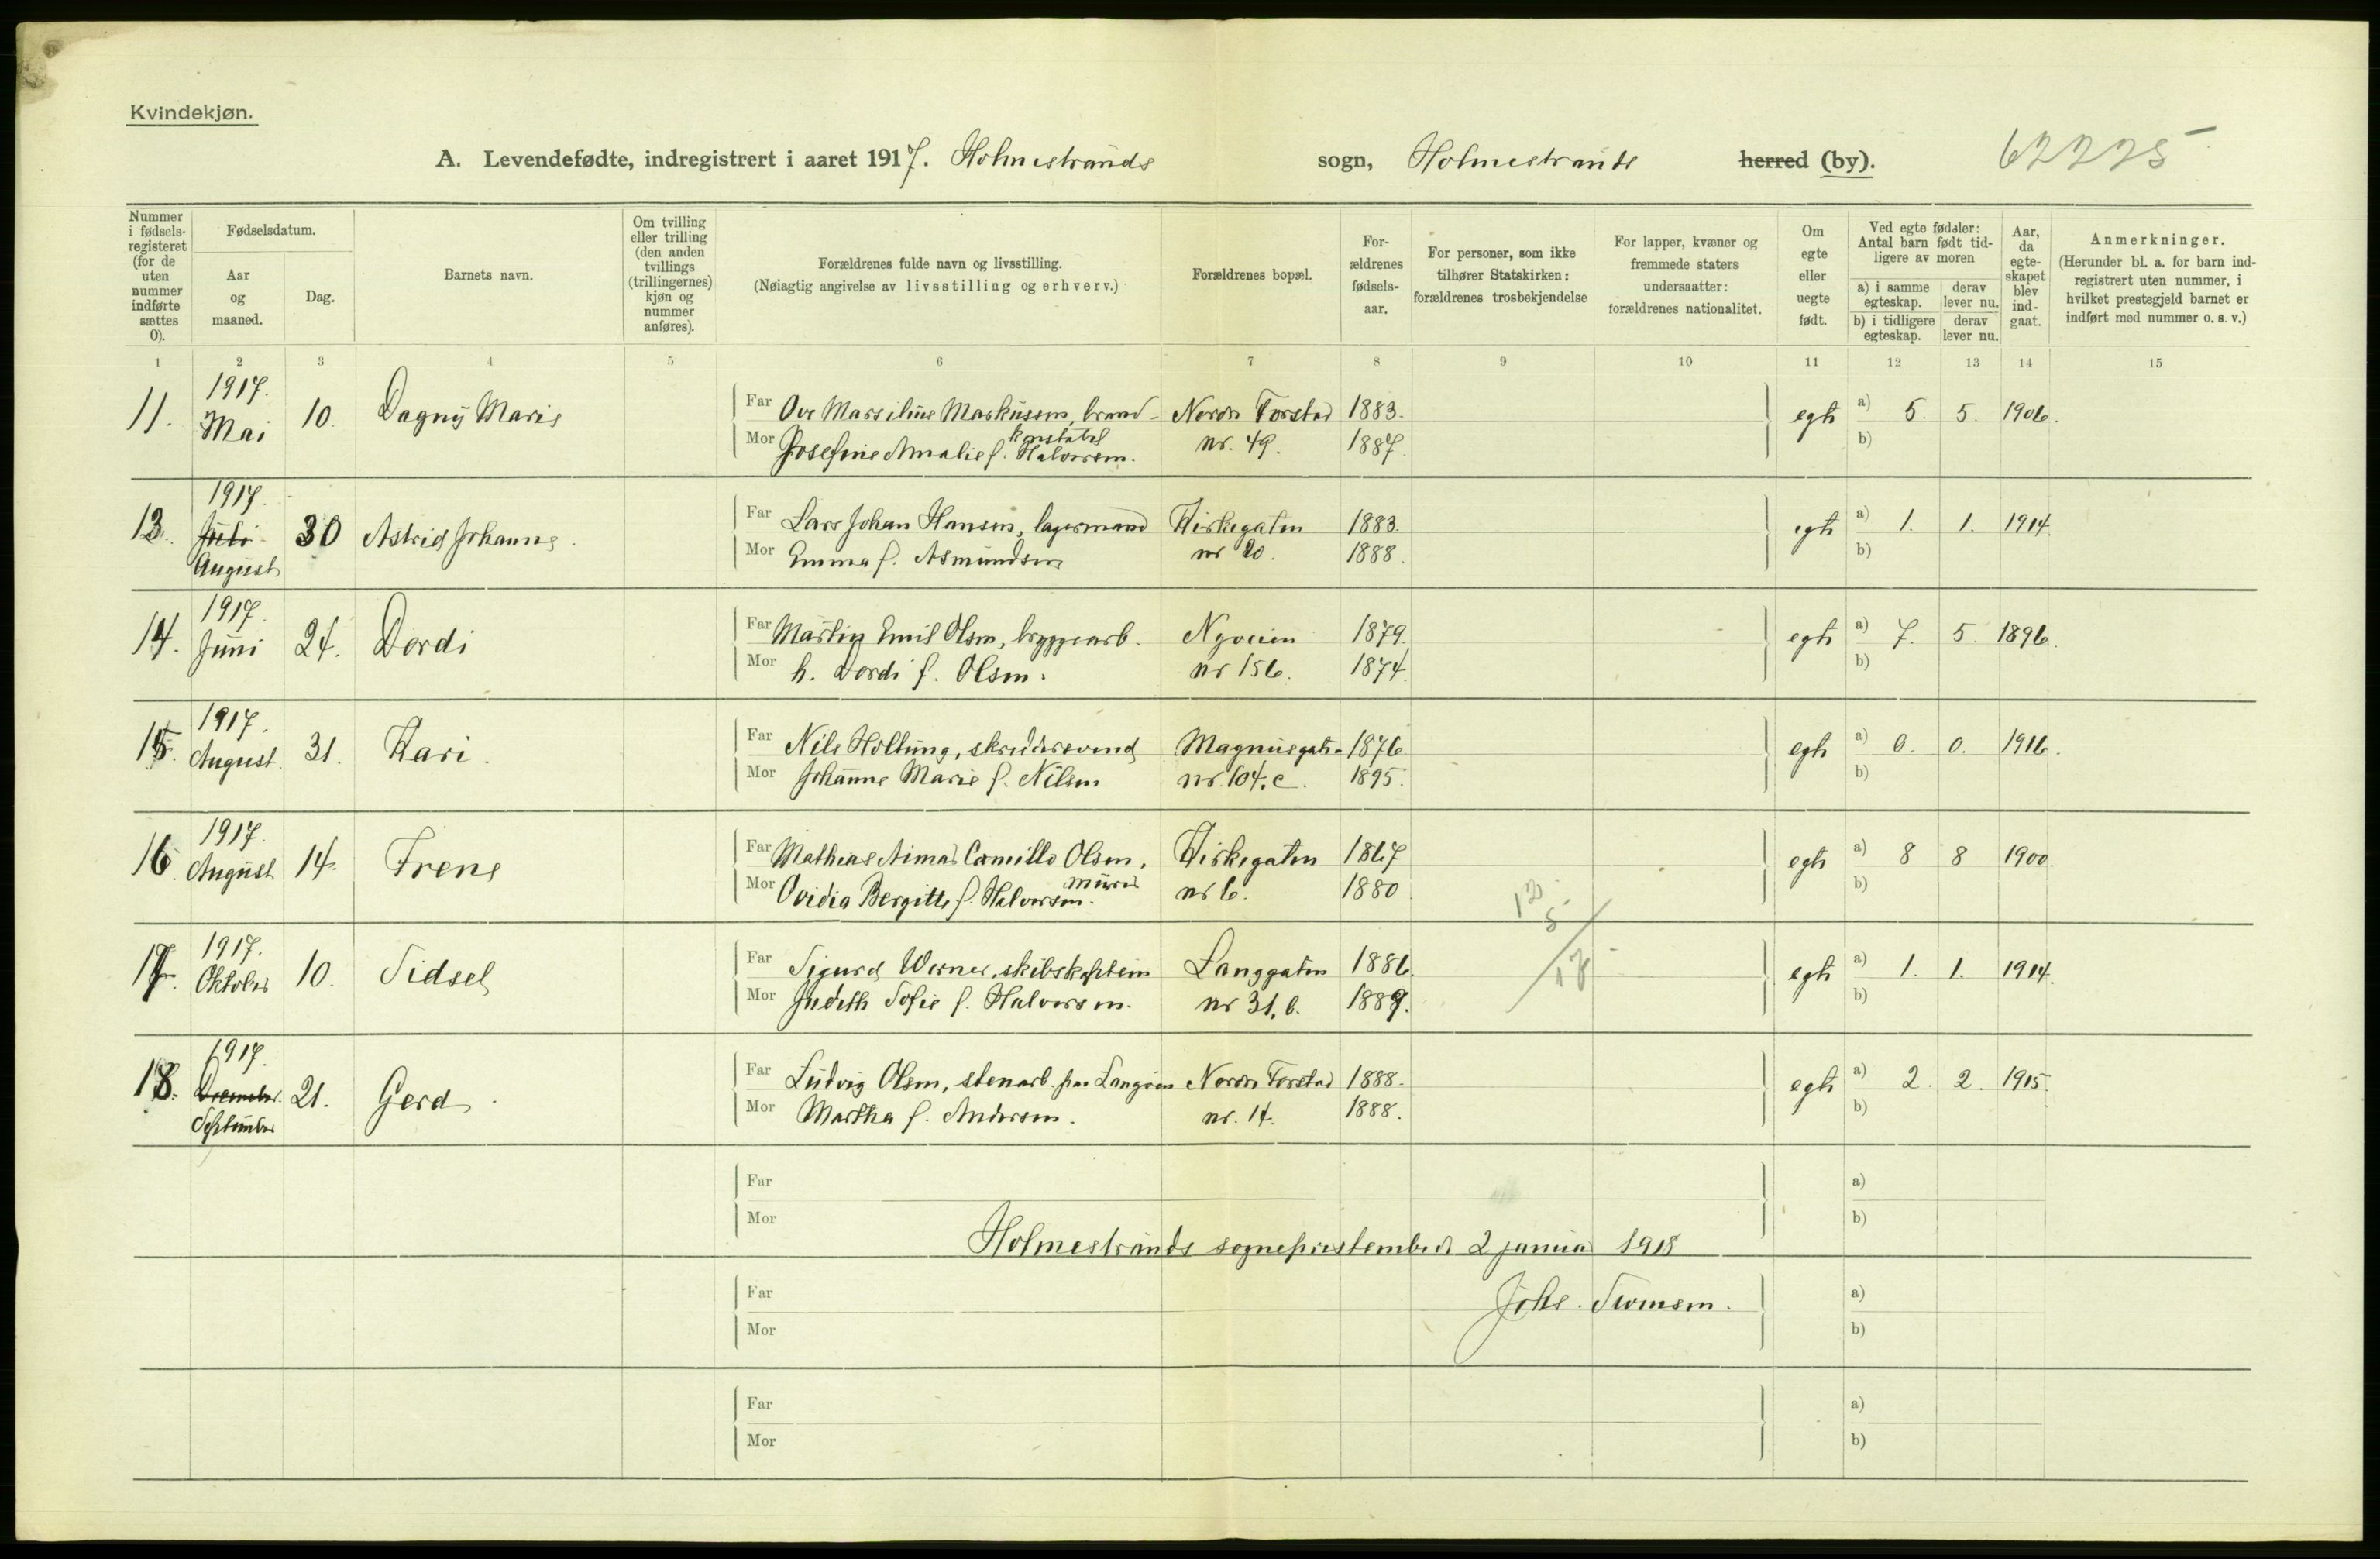 Kvindekjøn.
A. Levendefødte, indregistrert i aaret 1917. Holmestrands sogn, Holmestrands herred (by). 62225
Nummer i fødsels-registeret (for de uten nummer indførte sættes 0).
Fødselsdatum.
Aar og maaned.
Dag.
Barnets navn.
Om tvilling eller trilling (den anden tvillings (trillingernes) kjøn og nummer anføres).
Forældrenes fulde navn og livsstilling.
(Nøiagtig angivelse av livsstilling og erhverv.)
Forældrenes bopæl.
For-ældrenes fødsels-aar.
For personer, som ikke tilhører Statskirken: forældrenes trosbekjendelse
For lapper, kvæner og fremmede staters undersaatter: forældrenes nationalitet.
Om egte eller uegte født.
Ved egte fødsler: Antal barn født tid-ligere av moren
a) i samme egteskap. derav lever nu.
b) i tidligere egteskap. derav lever nu.
Aar, da egte-skapet blev ind-gaat.
Anmerkninger.
(Herunder bl. a. for barn ind-registrert uten nummer, i hvilket prestegjeld barnet er indført med nummer o. s. v.)
1 2 3 4 5 6 7 8 9 10 11 12 13 14 15
11. 1917. Mai 10. Dagny Marie
Far Ove Marselius Markussen, brand- Nordre Torstad 1883. egte a) 5. 5. 1906.
konstabel
Mor Josefine Amalie f. Halvorsen. nr. 49. 1887. b)
13. 1917. Juli August 30 Astrid Johanne.
Far Lars Johan Hansen, lagermand Kirkegaten 1883. egte a) 1. 1. 1914.
Mor Emma f. Asmundsen nr 20. 1888. b)
14. 1917. Juni 24. Dordi
Far Martin Emil Olsen, bryggearb. Nyveien 1879. egte a) 7. 5. 1896.
Mor h. Dordi f. Olsen. nr 156. 1874. b)
15. 1917. August. 31. Kari.
Far Nils Holtung, skræddersvend Magnusgate 1876 egte a) 0. 0. 1916.
Mor Johanne Marie f. Nilsen nr. 104. c. 1895. b)
16. 1917. August 14. Irene
Far Mathias Aimar Camillo Olsen, Kirkegaten 1867 egte a) 8 8 1900.
murer
Mor Ovidia Bergitte f. Halvorsen. nr 6. 1880 b)
12
5
18
17. 1917. Oktober 10. Sidsel
Far Sigurd Werner, skibskaptein Langgaten 1886. egte a) 1. 1. 1914.
Mor Judith Sofie f. Halvorsen. nr 31. b. 1889. b)
18. 1917. Desember. September 21. Gerd.
Far Ludvig Olsen, stenarb. paa Langøen Nordre Torstad 1888. egte a) 2. 2. 1915.
Mor Martha f. Andersen. nr. 14. 1888. b)
Far a)
Mor b)
Holmestrands sogneprestembede 2 januar 1918
Far a)
Johs.
Mor b)
Far a)
Mor b)